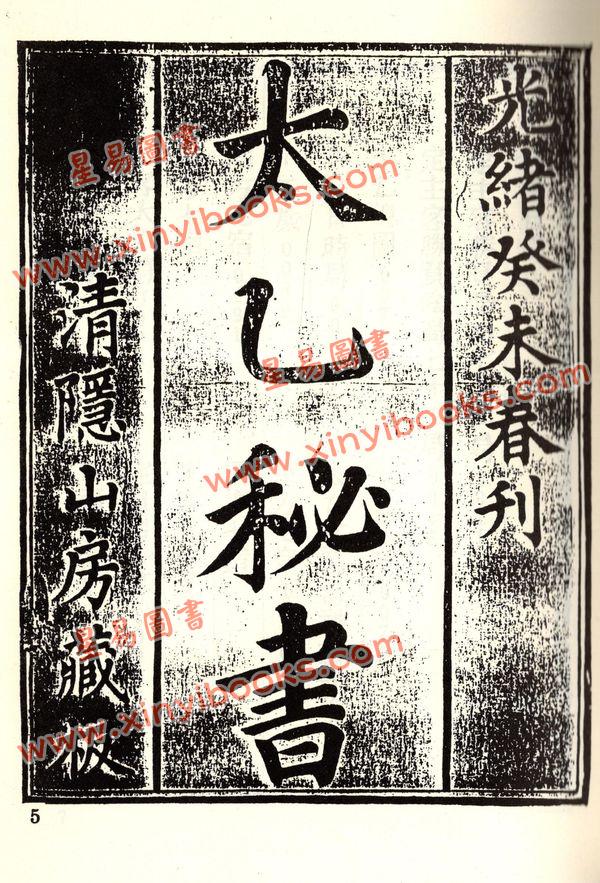 光緒癸未春刊
太乙秘書
清隱山房藏板
星易圖書
www.xinyibooks.com
星易圖書
www.xinyibooks.com
星易圖書
www.xinyibooks.com
5